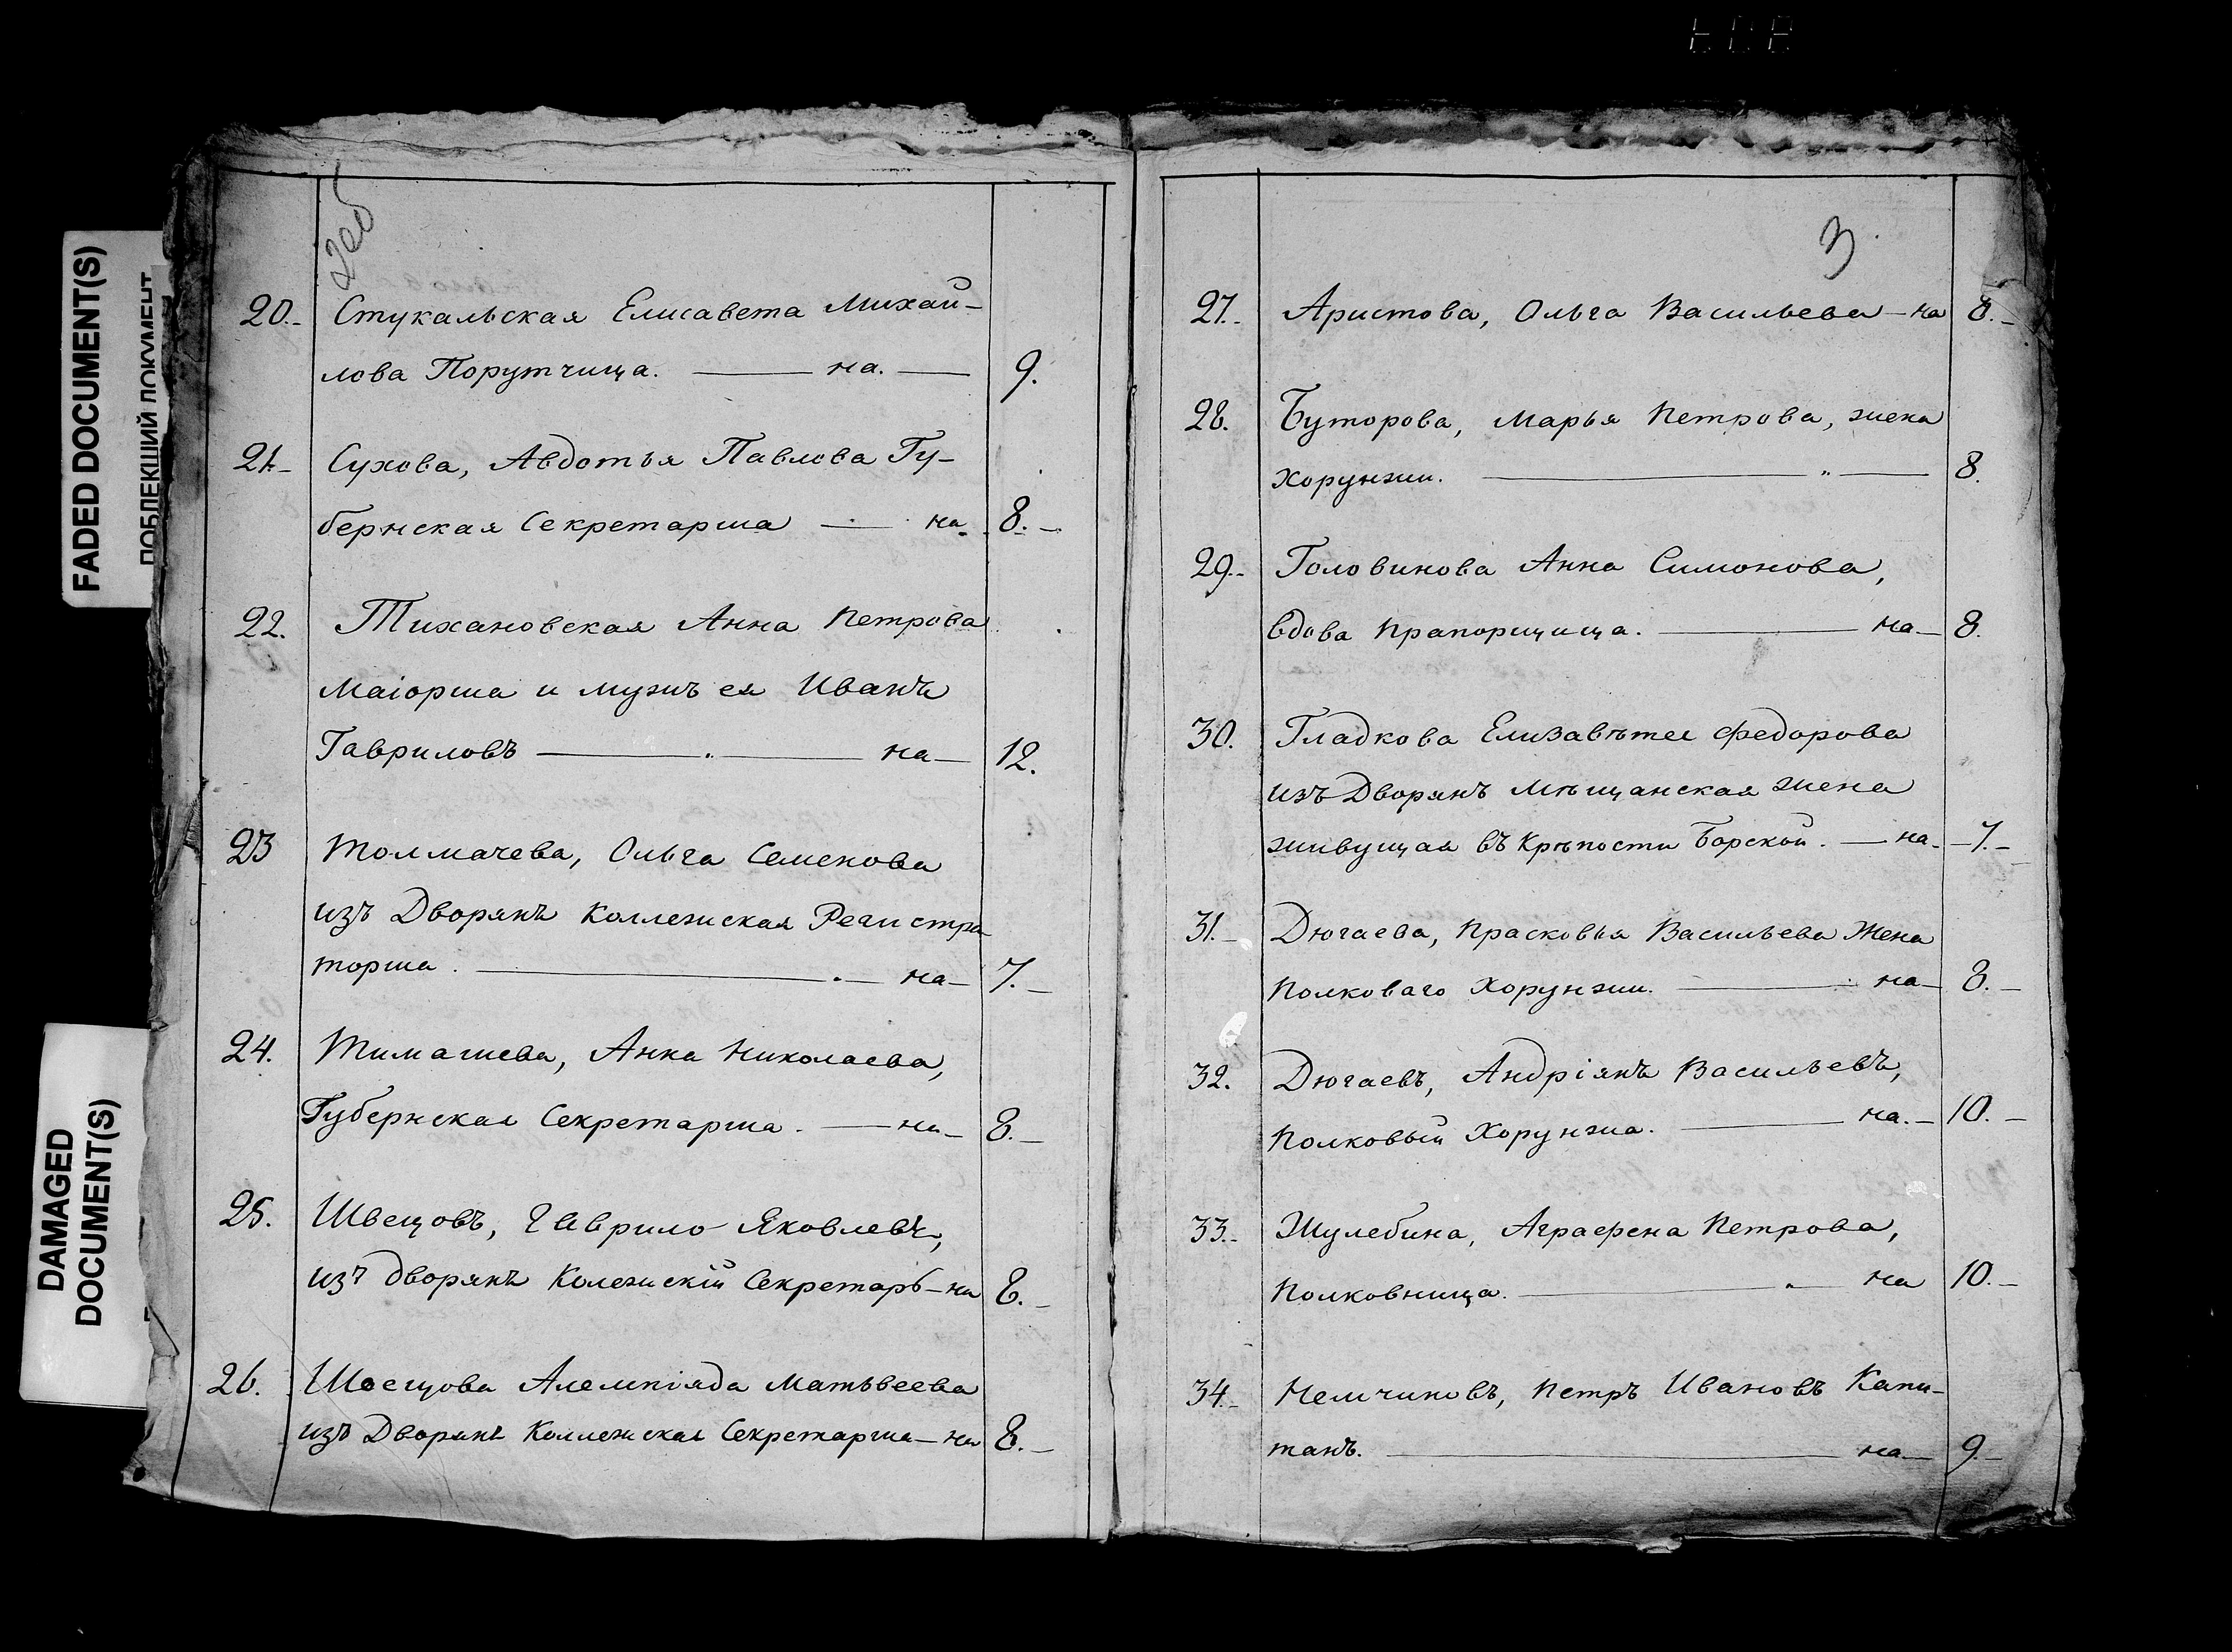 FADED DOCUMENT(S)
ПОБЛЕКШИЙ ДОКУМЕНТ
DAMAGED
DOCUMENT(S)
2об
20.- Стукальская Елисавета Михай-
лова Порутчица. — на. — 9.
21.- Сухова, Авдотья Павлова Гу-
бернская Секретарша — на. 8.-
22. Тихановская Анна Петрова
Маіорша и мужъ ея Иванъ
Гавриловъ — на — 12.
23 Толмачева, Ольга Семенова
изъ Дворянъ Коллежская Регистра
торша. — на — 7.-
24. Тимашева, Анна Николаева,
Губернская Секретарша. — на — 8.-
25. Швецовъ, Гаврило Яковлевъ,
изъ дворянъ Колежскій Секретарь — на 8.-
26. Швецова Алемпіяда Матвеева
изъ Дворянъ Коллежская Секретарша — на 8.-
3
27.- Аристова, Ольга Васильева — на 8.-
28. Буторова, Марья Петрова, жена
Хорунжии. — " — 8.
29.- Головинова Анна Симонова,
вдова Прапорщица. — на — 8.
30. Гладкова Елизавѣтее Федорова
изъ Дворянъ Мѣщанская жена
живущая въ Крѣпости Борской. — на. — 7.-
31.- Дюгаева, Прасковья Васильева Жена
Полковаго Хорунжии. — на — 8.-
32. Дюгаевъ, Андріянъ Васильевъ,
Полковый Хорунжа. — на. — 10.-
33.- Жулебина, Аграфена Петрова,
Полковница. — на 10.-
34.- Немчиновъ, Петръ Ивановъ Капи-
танъ. — на — 9.-